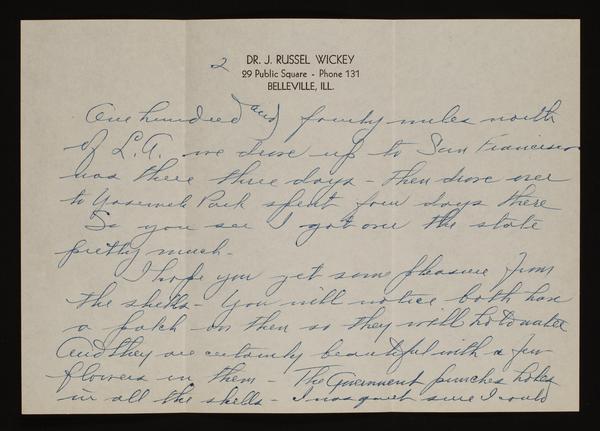 2
DR. J. RUSSEL WICKEY
29 Public Square - Phone 131
BELLEVILLE, ILL.
One hundred and fourty miles north
of L.A. we drove up to San Francisco
was there three days - then drove over
to Yosemite Park spent four days there
So you see I got over the state
pretty much -
I hope you get some pleasure from
the shells - You will notice both have
a patch on then so they will hold water
And they are certainly beautiful with a few
flowers in them - The Government punches holes
in all the shells - I was quiet sure I could